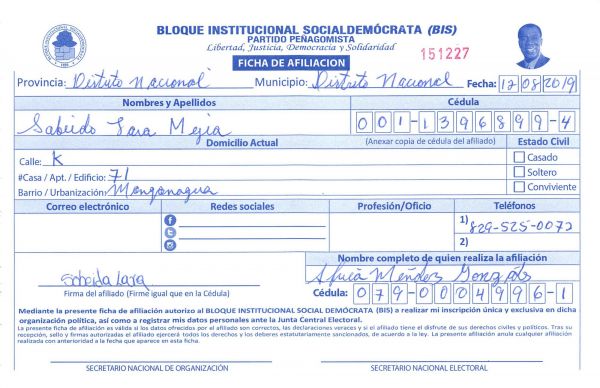 BLOQUE INSTITUCIONAL SOCIALDEMÓCRATA (BIS)
PARTIDO PEÑAGOMISTA
Libertad, Justicia, Democracia y Solidaridad
151227
FICHA DE AFILIACION
Provincia: Distrito Nacional Municipio: Distrito Nacional Fecha: 12/08/2019
Nombres y Apellidos Cédula
Sabeido Lara Mejia 001-1396899-4
Domicilio Actual (Anexar copia de cédula del afiliado) Estado Civil
Calle: K Casado
#Casa / Apt. / Edificio: 71 Soltero
Barrio / Urbanización: Manganagua Conviviente
Correo electrónico Redes sociales Profesión/Oficio Teléfonos
1) 829-525-0072
2)
Nombre completo de quien realiza la afiliación
Sobeida Lara Méndez González
Firma del afiliado (Firme igual que en la Cédula) Cédula: 079-0004996-1
Mediante la presente ficha de afiliación autorizo al BLOQUE INSTITUCIONAL SOCIAL DEMÓCRATA (BIS) a realizar mi inscripción única y exclusiva en dicha
organización política, así como a registrar mis datos personales ante la Junta Central Electoral.
La presente ficha de afiliación es válida si los datos ofrecidos por el afiliado son correctos, las declaraciones veraces y si el afiliado tiene el disfrute de sus derechos civiles y políticos. Tras su
recepción, sello y firmas autorizadas el afiliado ejercerá todos los derechos y los deberes estatutariamente sancionados, de acuerdo a la ley. La presente afiliación anula cualquier afiliación
realizada con anterioridad a la fecha que aparece en esta ficha.
SECRETARIO NACIONAL DE ORGANIZACIÓN SECRETARIO NACIONAL ELECTORAL